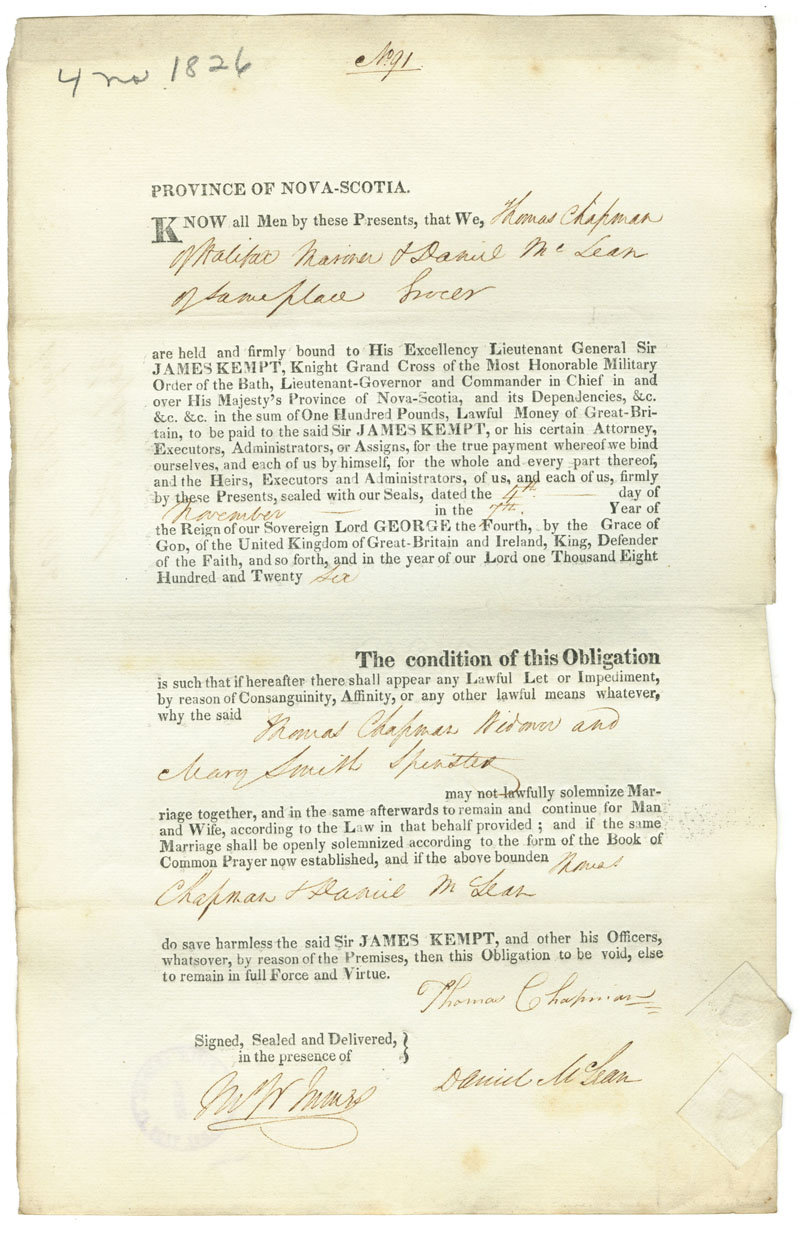 4 no 1826
No. 91
PROVINCE OF NOVA-SCOTIA.
KNOW all Men by these Presents, that We, Thomas Chapman
of Halifax Mariner & Daniel Mc Lean
of same place Grocer
are held and firmly bound to His Excellency Lieutenant General Sir
JAMES KEMPT, Knight Grand Cross of the Most Honorable Military
Order of the Bath, Lieutenant-Governor and Commander in Chief in and
over His Majesty's Province of Nova-Scotia, and its Dependencies, &c.
&c. &c. in the sum of One Hundred Pounds, Lawful Money of Great-Bri-
tain, to be paid to the said Sir JAMES KEMPT, or his certain Attorney,
Executors, Administrators, or Assigns, for the true payment whereof we bind
ourselves, and each of us by himself, for the whole and every part thereof,
and the Heirs, Executors and Administrators, of us, and each of us, firmly
by these Presents, sealed with our Seals, dated the 4th. — day of
November — in the 7th. Year of
the Reign of our Sovereign Lord GEORGE the Fourth, by the Grace of
GOD, of the United Kingdom of Great-Britain and Ireland, King, Defender
of the Faith, and so forth, and in the year of our Lord one Thousand Eight
Hundred and Twenty Six
The condition of this Obligation
is such that if hereafter there shall appear any Lawful Let or Impediment,
by reason of Consanguinity, Affinity, or any other lawful means whatever,
why the said Thomas Chapman Widower and
Mary Smith Spinster
may not lawfully solemnize Mar-
riage together, and in the same afterwards to remain and continue for Man
and Wife, according to the Law in that behalf provided ; and if the same
Marriage shall be openly solemnized according to the form of the Book of
Common Prayer now established, and if the above bounden Thomas
Chapman & Daniel Mc Lean
do save harmless the said Sir JAMES KEMPT, and other his Officers,
whatsover, by reason of the Premises, then this Obligation to be void, else
to remain in full Force and Virtue.
Thomas Chapman
Signed, Sealed and Delivered,
in the presence of
Daniel McLean